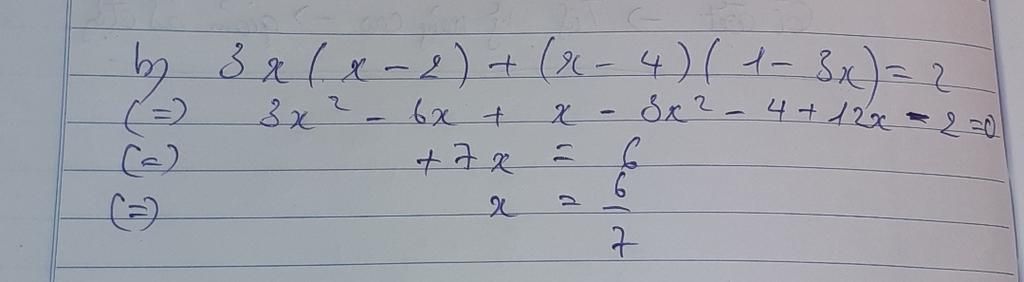 b) 3x(x-2)+(x-4)(1-3x)=2
(=) 3x²-6x+x-3x²-4+12x-2=0
(=) +7x = 6
(=) x = 6/7